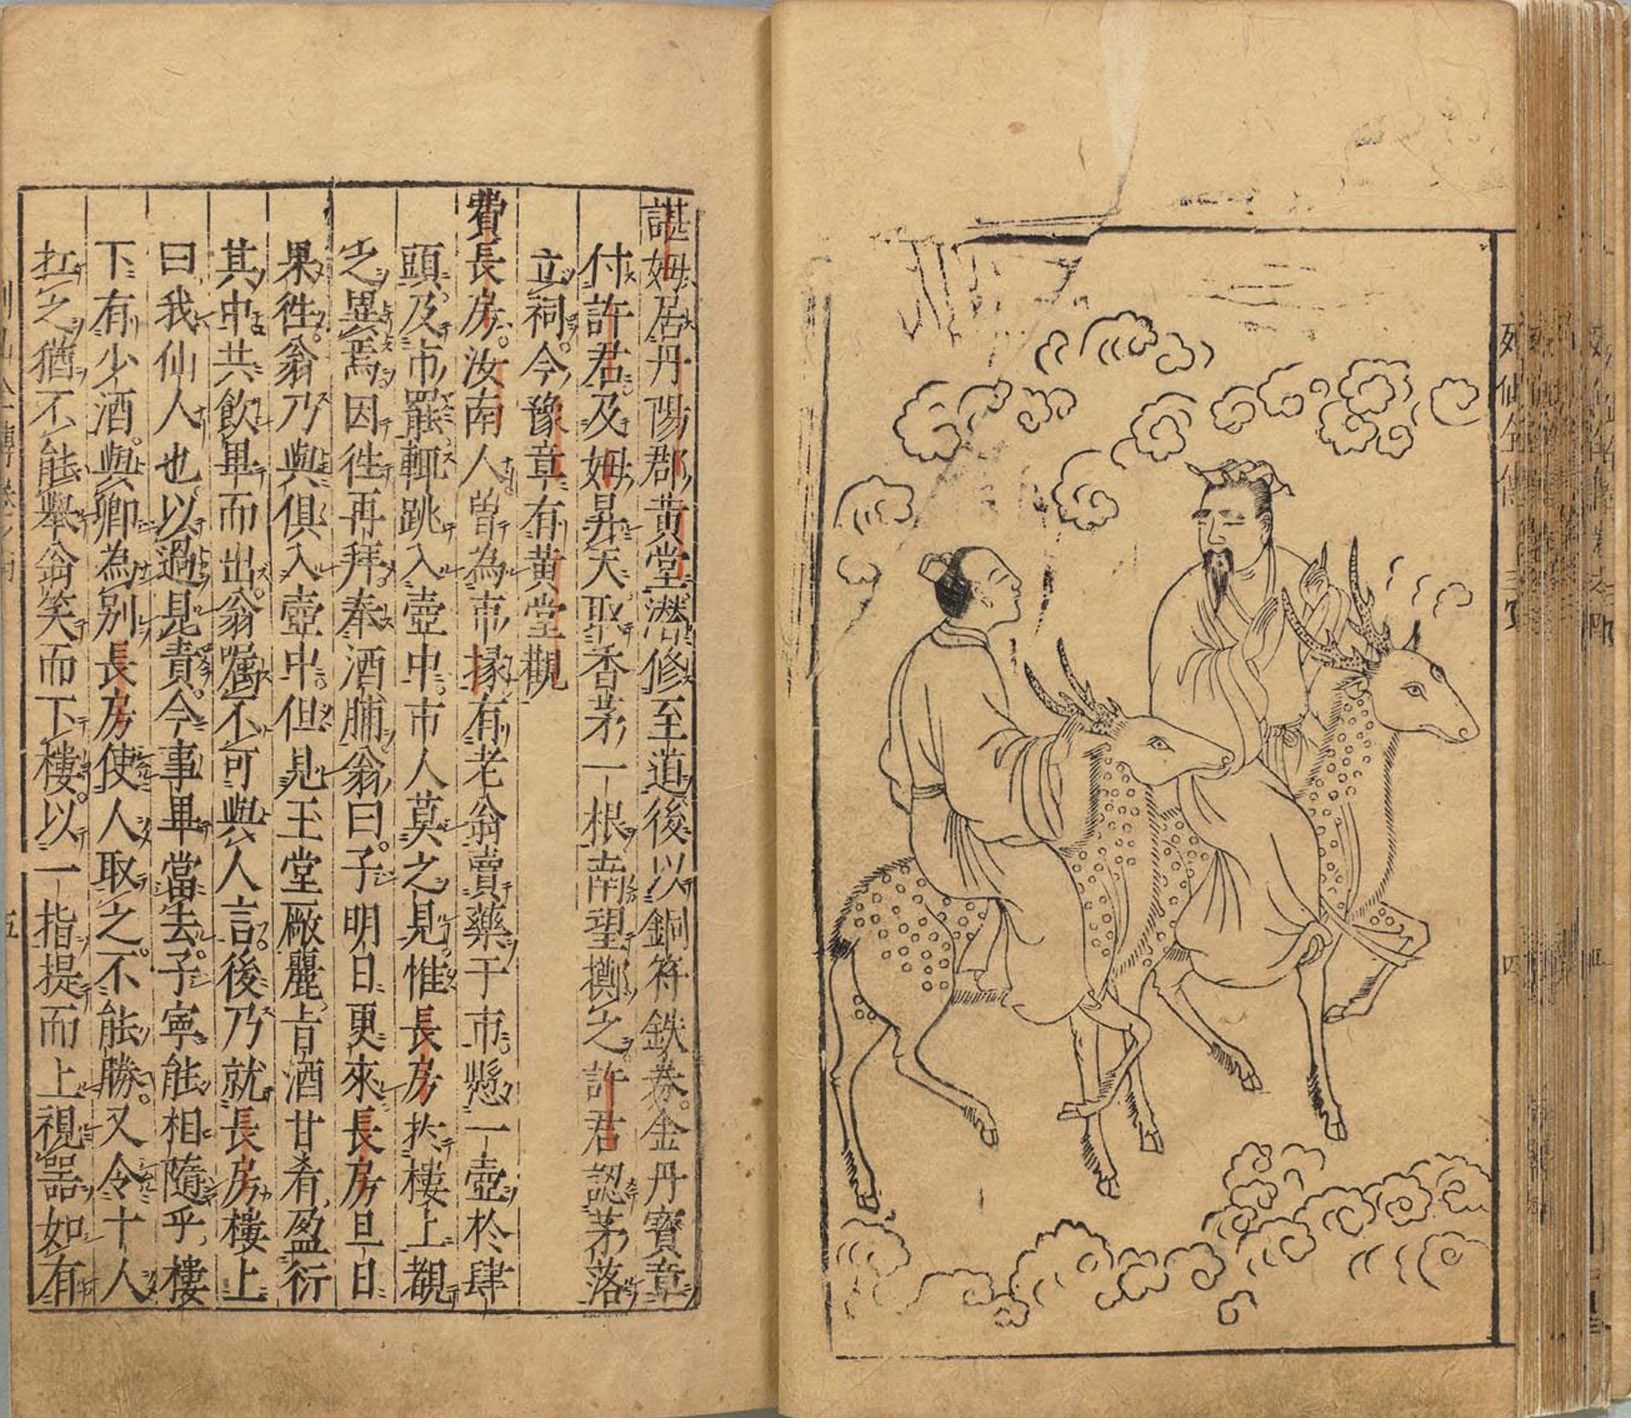 諶姆居丹陽郡黃堂潛修至道後以銅符鉄券金丹寶章
付許君及姆昇天取香茅一根南望擲之許君認茅落
立祠今豫章有黃堂觀
費長房汝南人曽為市掾有老翁賣藥于市懸一壺於肆
頭及市罷輒跳入壺中市人莫之見惟長房於樓上覩
之異焉因徃再拜奉酒脯翁曰子明日更來長房旦日
果徃翁乃與俱入壺中但見玉堂厰麗旨酒甘肴盈衍
其中共飲畢而出翁囑不可與人言後乃就長房樓上
曰我仙人也以過見責今事畢當去子寧能相隨乎樓
下有少酒與卿為別長房使人取之不能勝又令十人
扛之猶不能舉翁笑而下樓以一指提而上視器如有